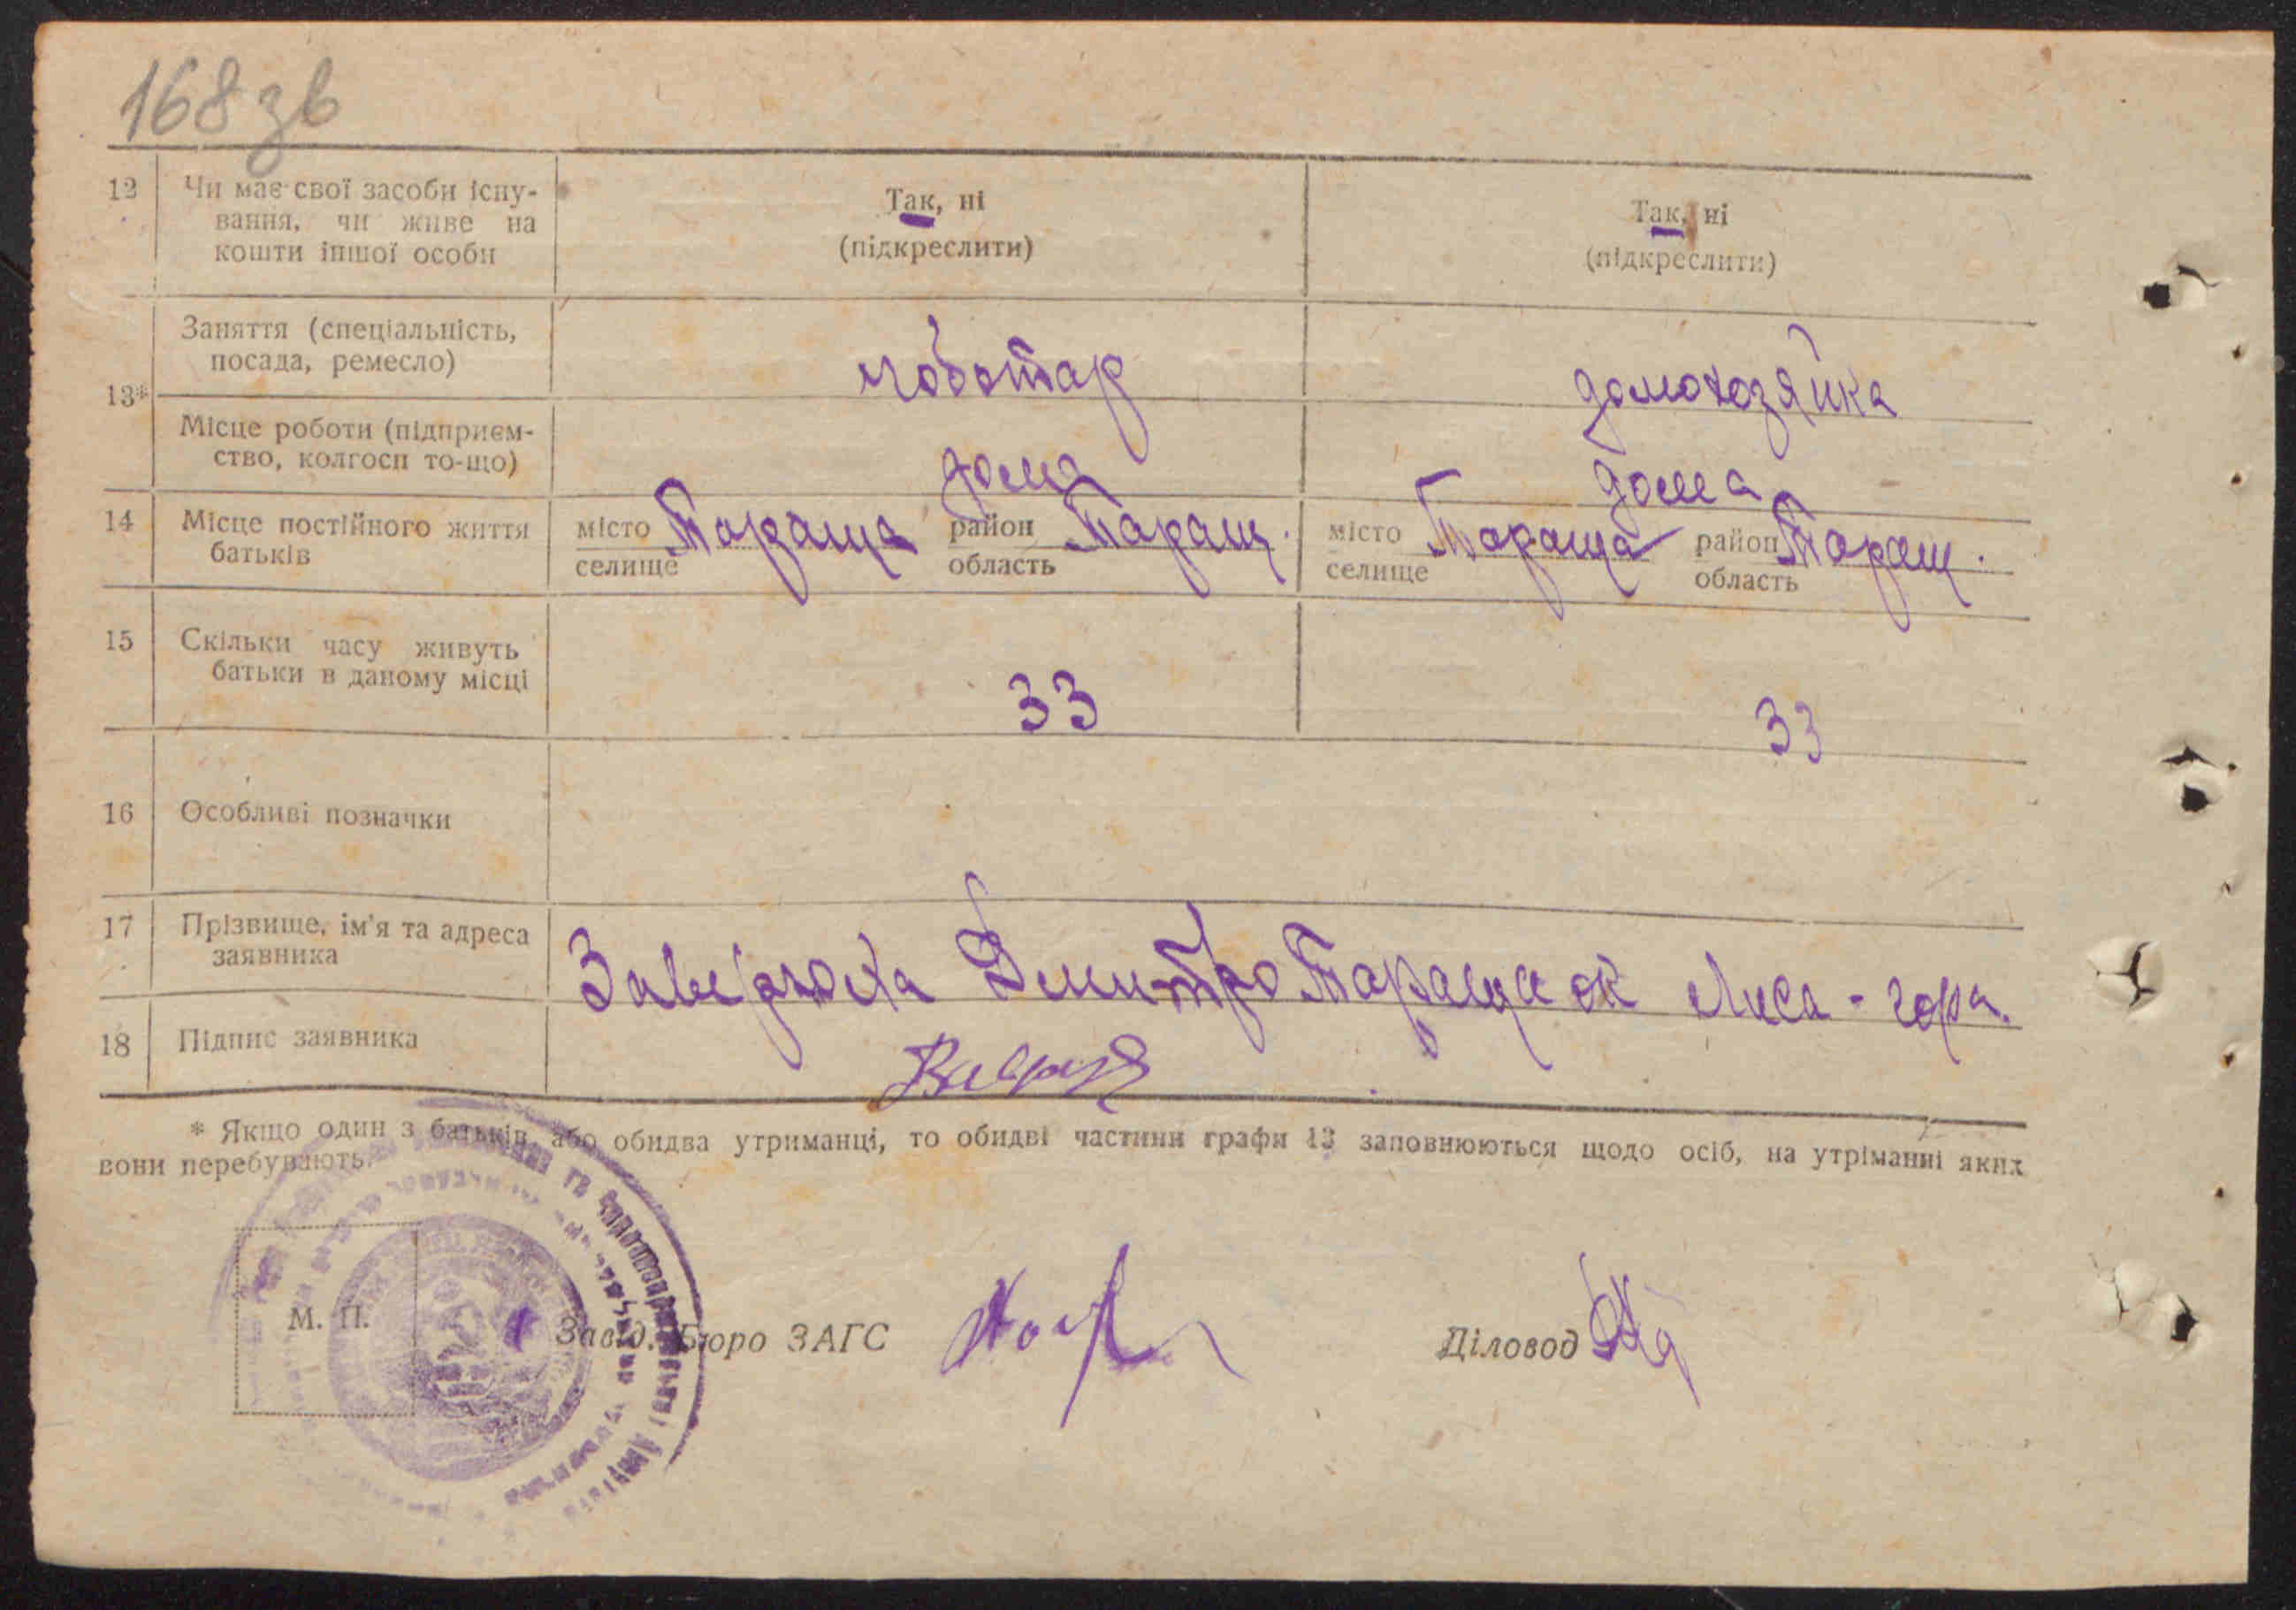 168 зв
12 Чи має свої засоби існу- Так, ні Так, ні
вання, чи живе на (підкреслити) (підкреслити)
кошти іншої особи
Заняття (спеціальність, чоботар домохозяйка
посада, ремесло)
13*
Місце роботи (підприєм- дома дома
ство, колгосп то-що)
14 Місце постійного життя місто Тараща район Таращ. місто Тараща район Таращ.
батьків селище область селище область
15 Скільки часу живуть
батьки в даному місці 33 33
16 Особливі позначки
17 Прізвище, ім'я та адреса
заявника Дмитро Тараща Лиса - гора.
18 Підпис заявника
* Якщо один з батьків, або обидва утриманці, то обидві частини графи 13 заповнюються щодо осіб, на утріманні яких
вони перебувають.
М. П. Завід. Бюро ЗАГС Діловод